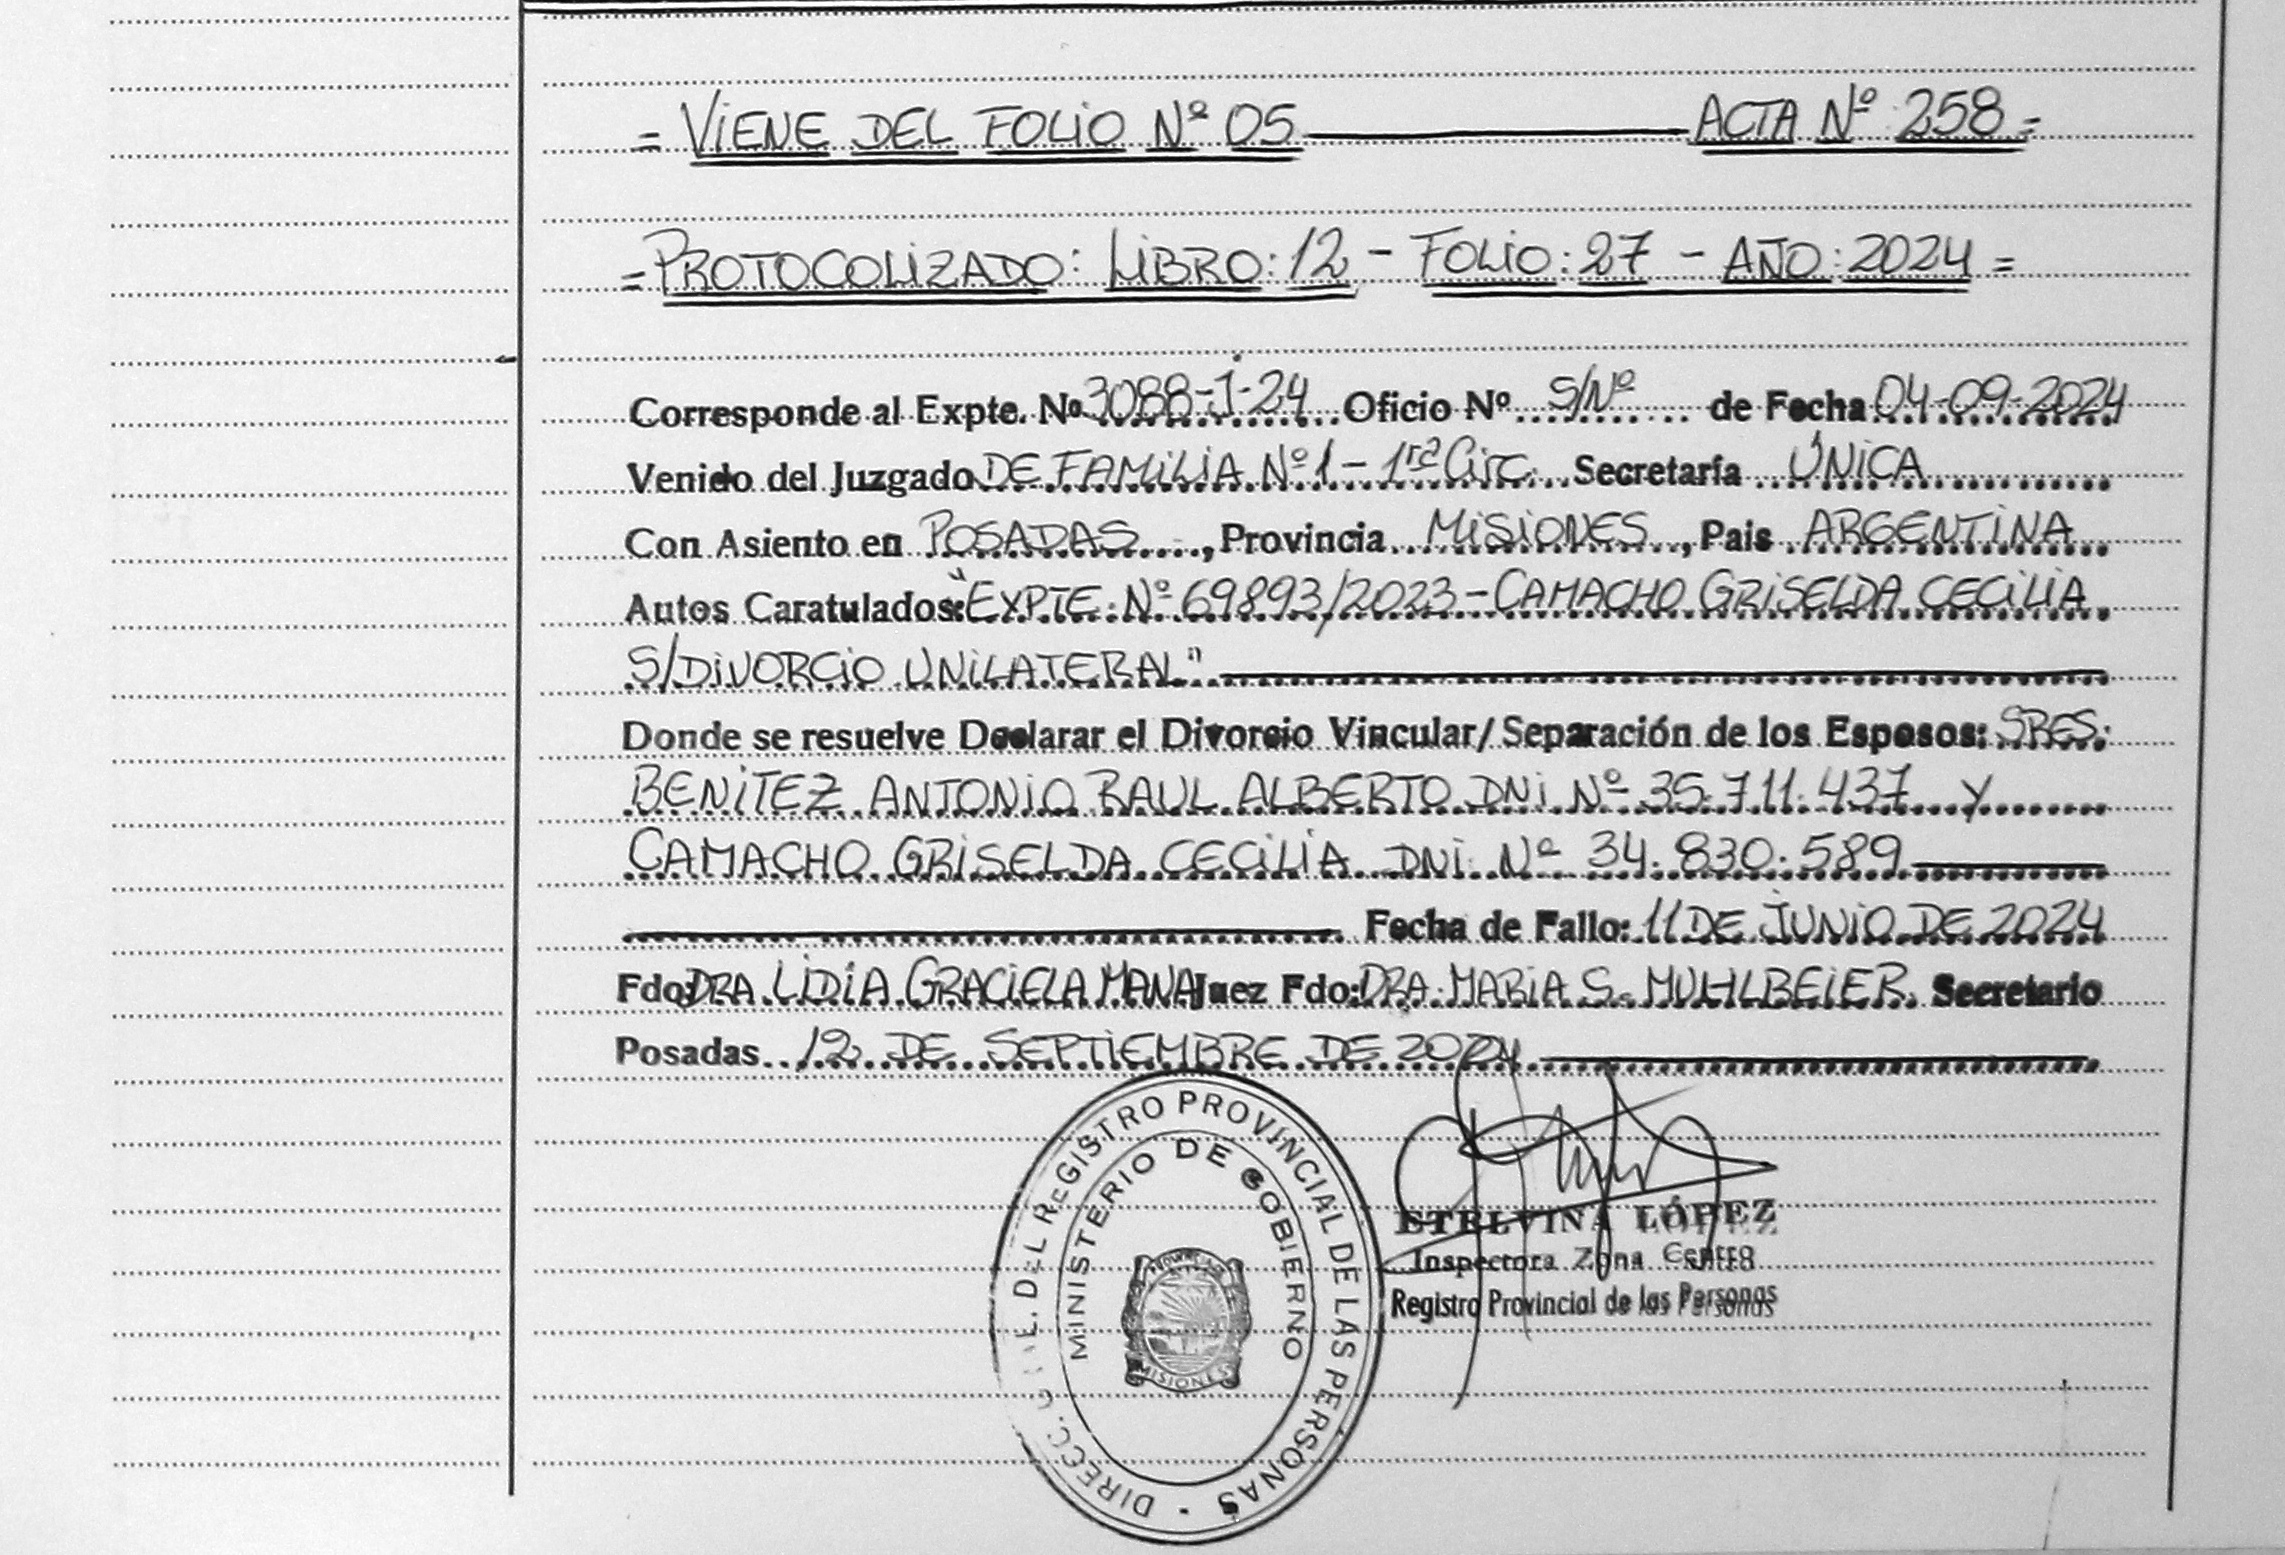 = VIENE DEL FOLIO Nº 05 ACTA Nº 258 =
= PROTOCOLIZADO: LIBRO: 12 - FOLIO: 27 - AÑO: 2024 =
Corresponde al Expte. Nº 3088-J-24 Oficio Nº S/Nº de Fecha 04-09-2024
Venido del Juzgado DE FAMILIA Nº 1 - 1ra Circ. Secretaría ÚNICA
Con Asiento en POSADAS, Provincia MISIONES, Pais ARGENTINA
Autos Caratulados: "EXPTE. Nº 69893/2023 - CAMACHO GRISELDA CECILIA
S/DIVORCIO UNILATERAL"
Donde se resuelve Declarar el Divorcio Vincular/Separación de los Esposos: SRES.
BENITEZ ANTONIO RAUL ALBERTO DNI Nº 35.711.437 y
CAMACHO GRISELDA CECILIA DNI Nº 34.830.589
Fecha de Fallo: 11 DE JUNIO DE 2024
Fdo: DRA LIDIA GRACIELA MANA Juez Fdo: DRA. MARIA S. MUHLBEIER. Secretario
Posadas 12 DE SEPTIEMBRE DE 2024
DIRECC. DEL REGISTRO PROVINCIAL DE LAS PERSONAS -
MINISTERIO DE GOBIERNO
MISIONES
ETELVINA LÓPEZ
Inspectora Zona Centro
Registro Provincial de las Personas